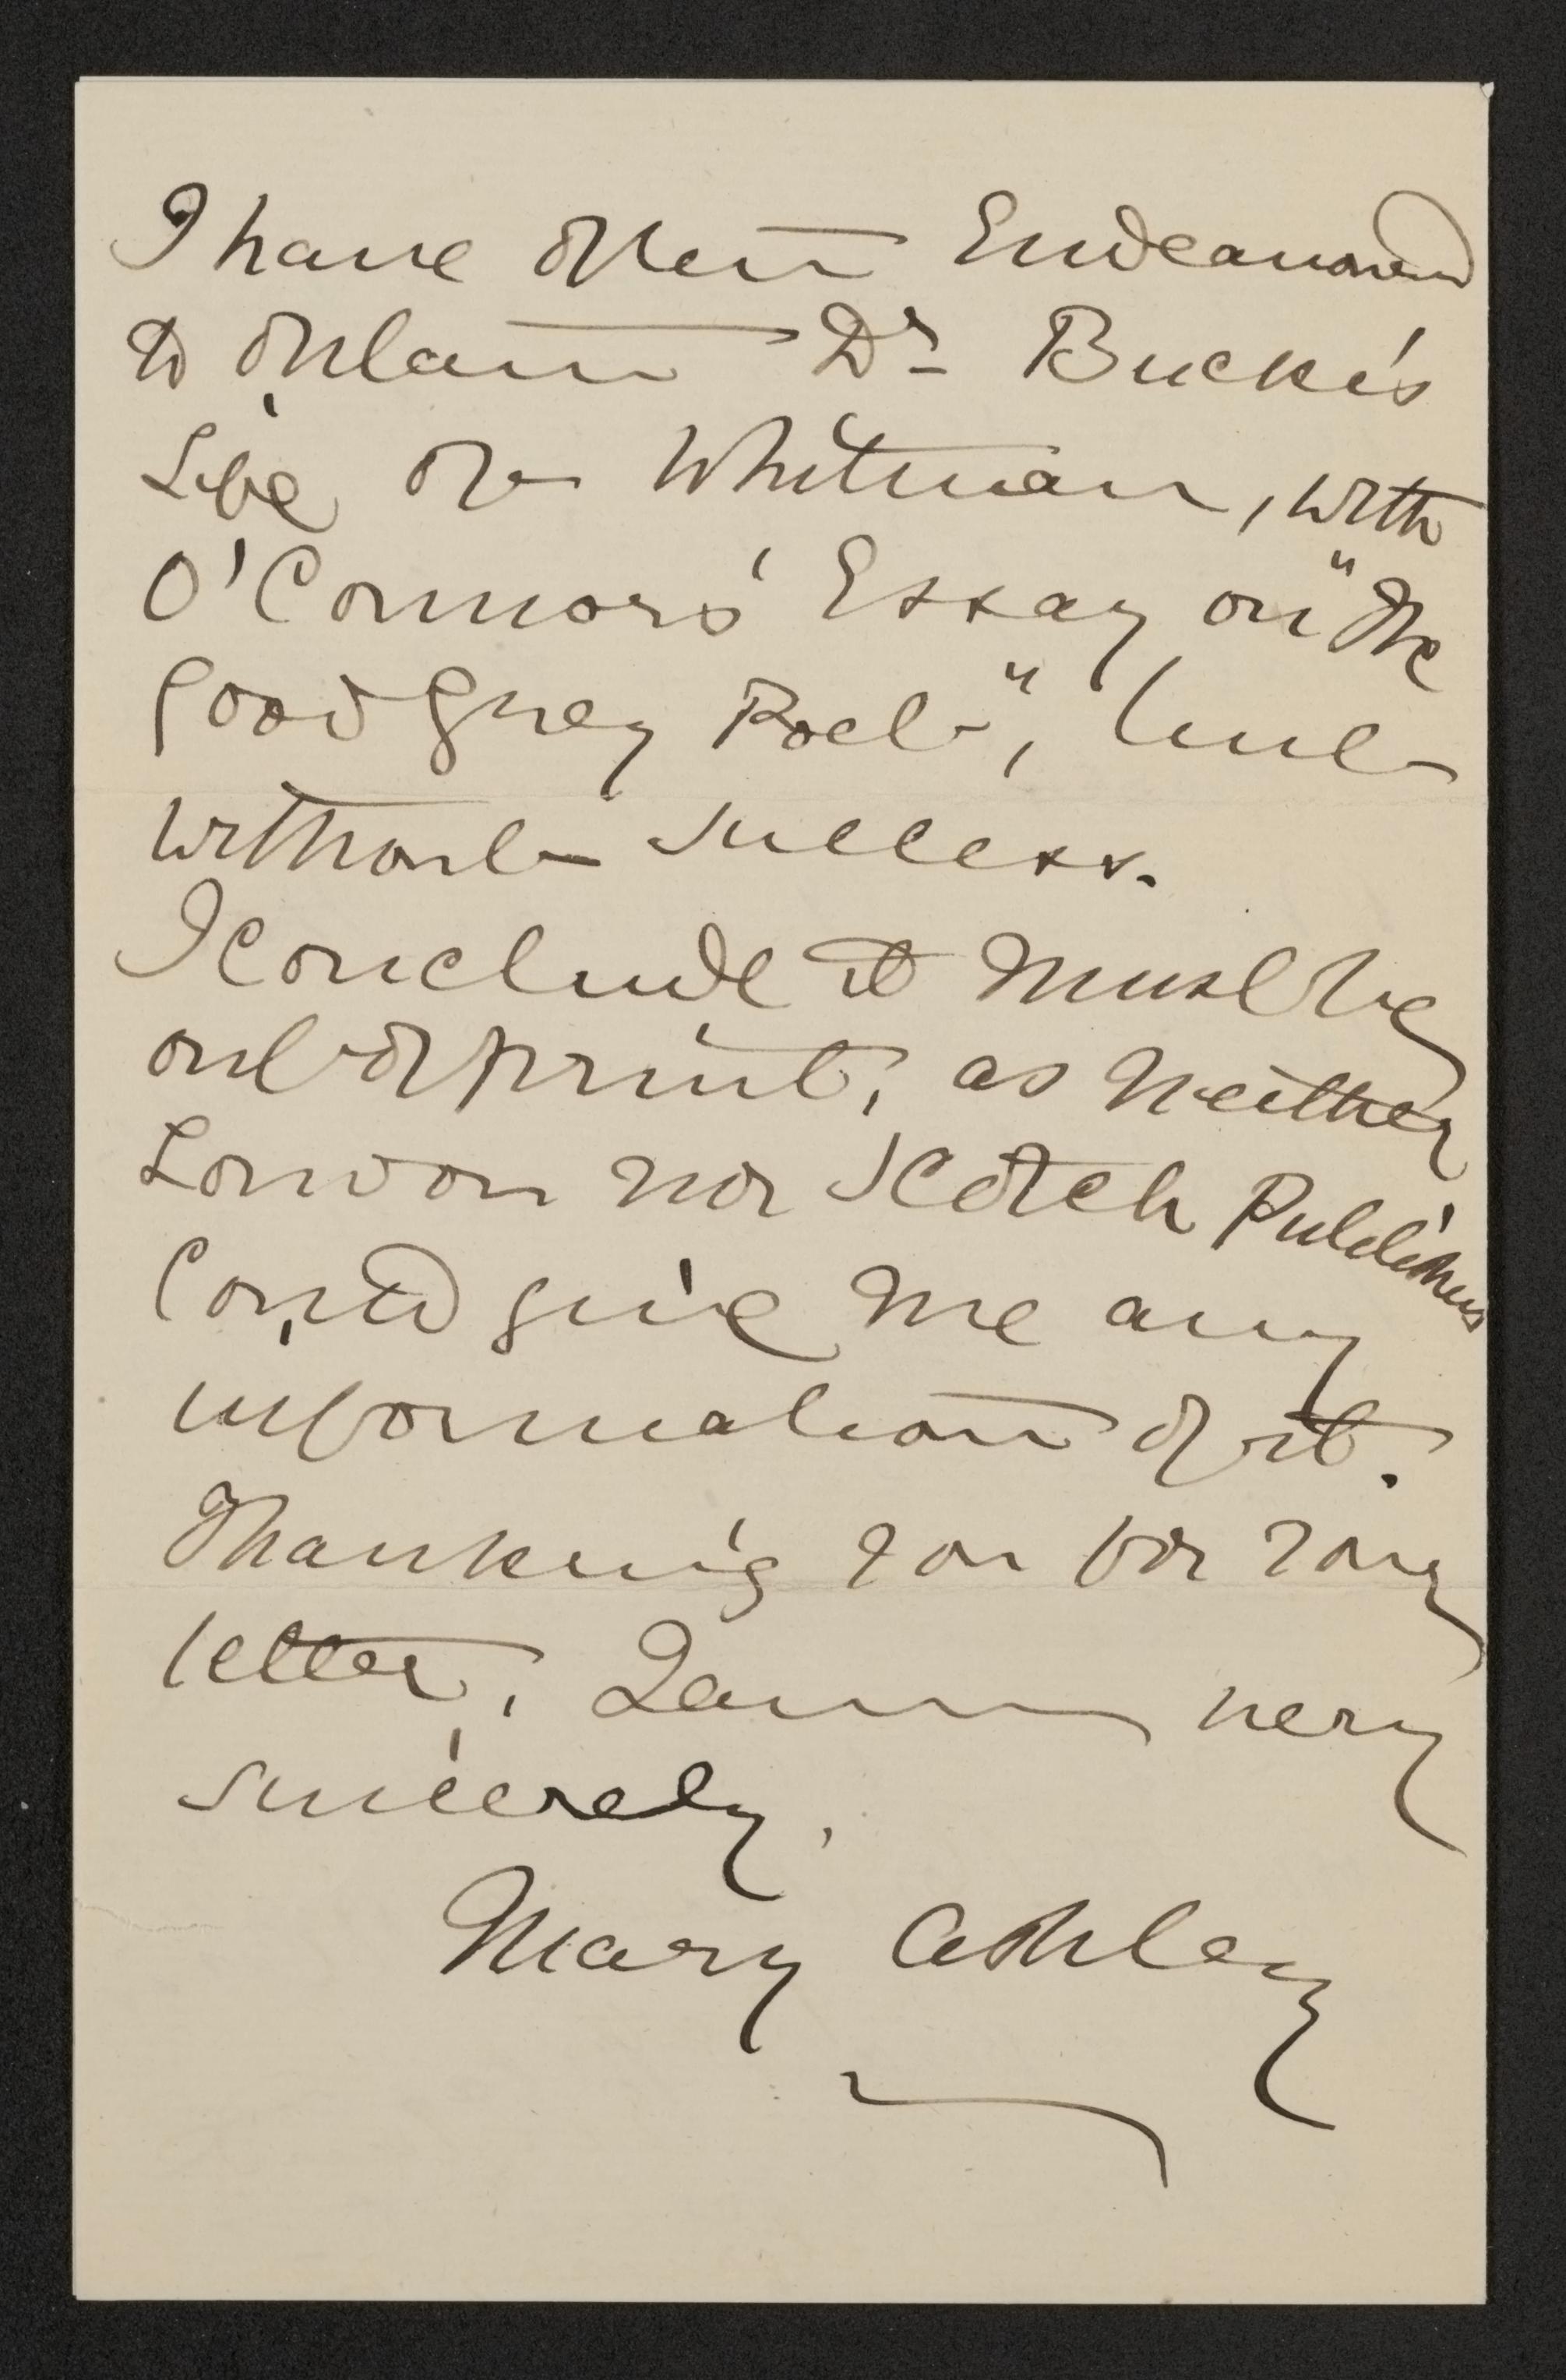 I have often Endeavoured
to obtain Dr Bucke's
Life of Whitman, with
O'Connors' Essay on "The
good Grey Poet", but
without success.
I conclude it must be
out of print, as neither
London nor Scotch Publishers
Could give me any
information of it.
Thanking you for your
letter, I am very
sincerely,
Mary Ashley